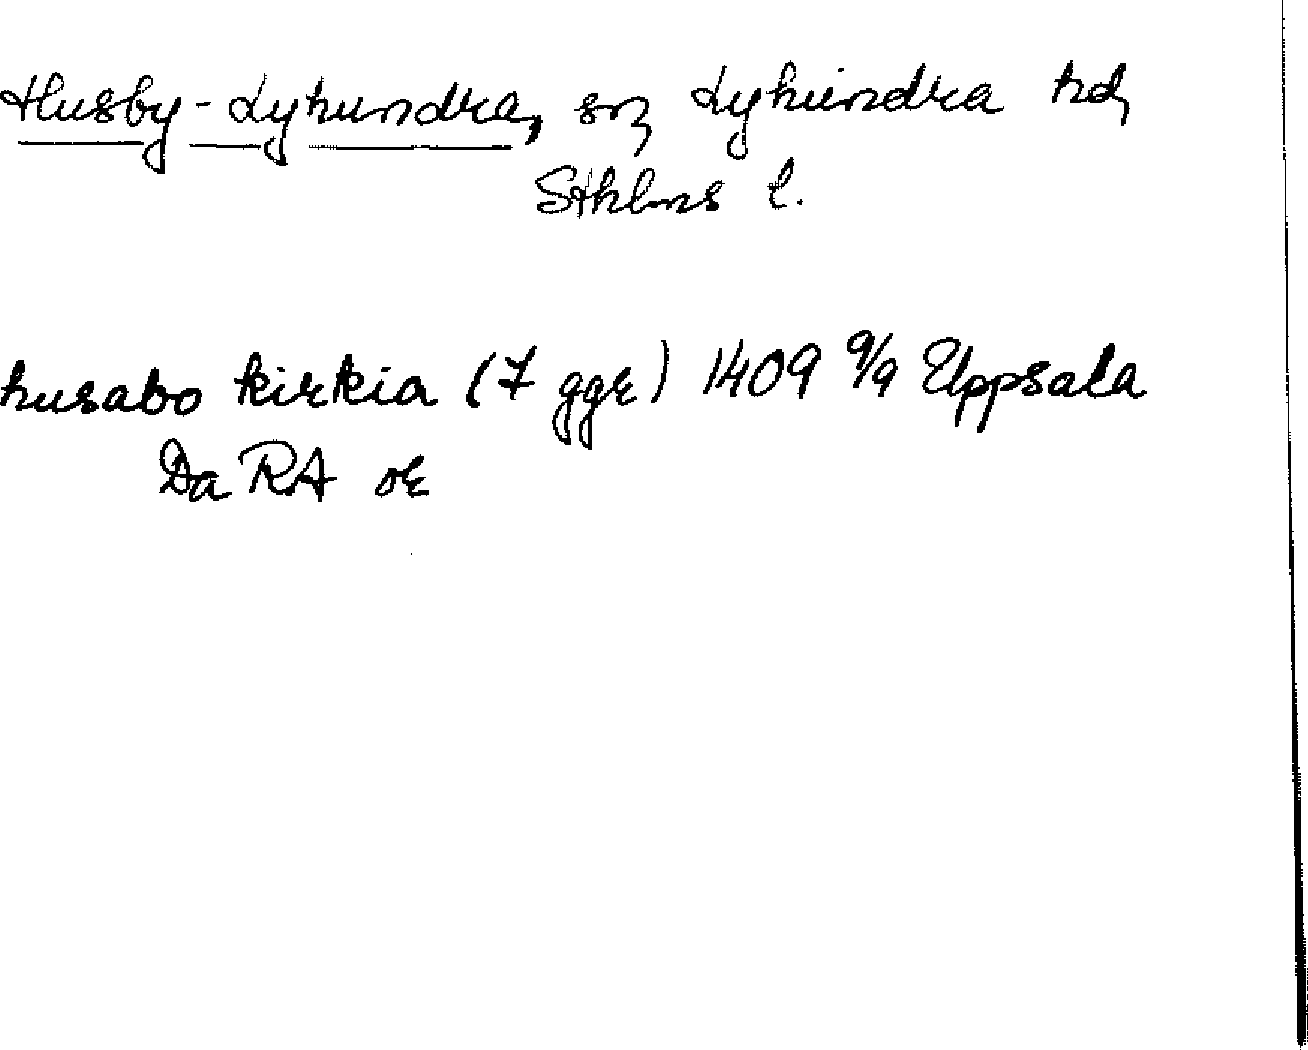 Husby-Lyhundra, sn, Lyhundra hd,
Sthlms l.
husabo kirkia (7 ggr) 1409 9/9 Uppsala
Da RA or